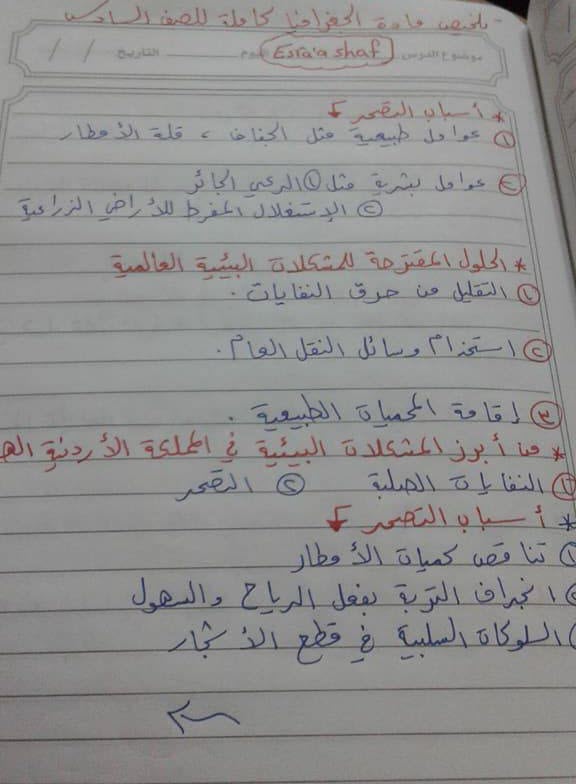 - تلخيص مادة الجغرافيا كاملة للصف السادس
موضوع الدرس Esra'a shaf اليوم التاريخ / /
* أسباب التصحر ↓
① عوامل طبيعية مثل الجفاف ، قلة الأمطار
② عوامل بشرية مثل ① الرعي الجائر
② الإستغلال المفرط للأراضي الزراعية
* الحلول المقترحة للمشكلات البيئية العالمية
① التقليل من حرق النفايات .
② استخدام وسائل النقل العام .
③ إقامة المحميات الطبيعية .
* من أبرز المشكلات البيئية في المملكة الأردنية اله
① النفايات الصلبة ② التصحر
* أسباب التصحر ↓
① تناقص كميات الأمطار
② انجراف التربة بفعل الرياح والسهول
السلوكات السلبية في قطع الأشجار